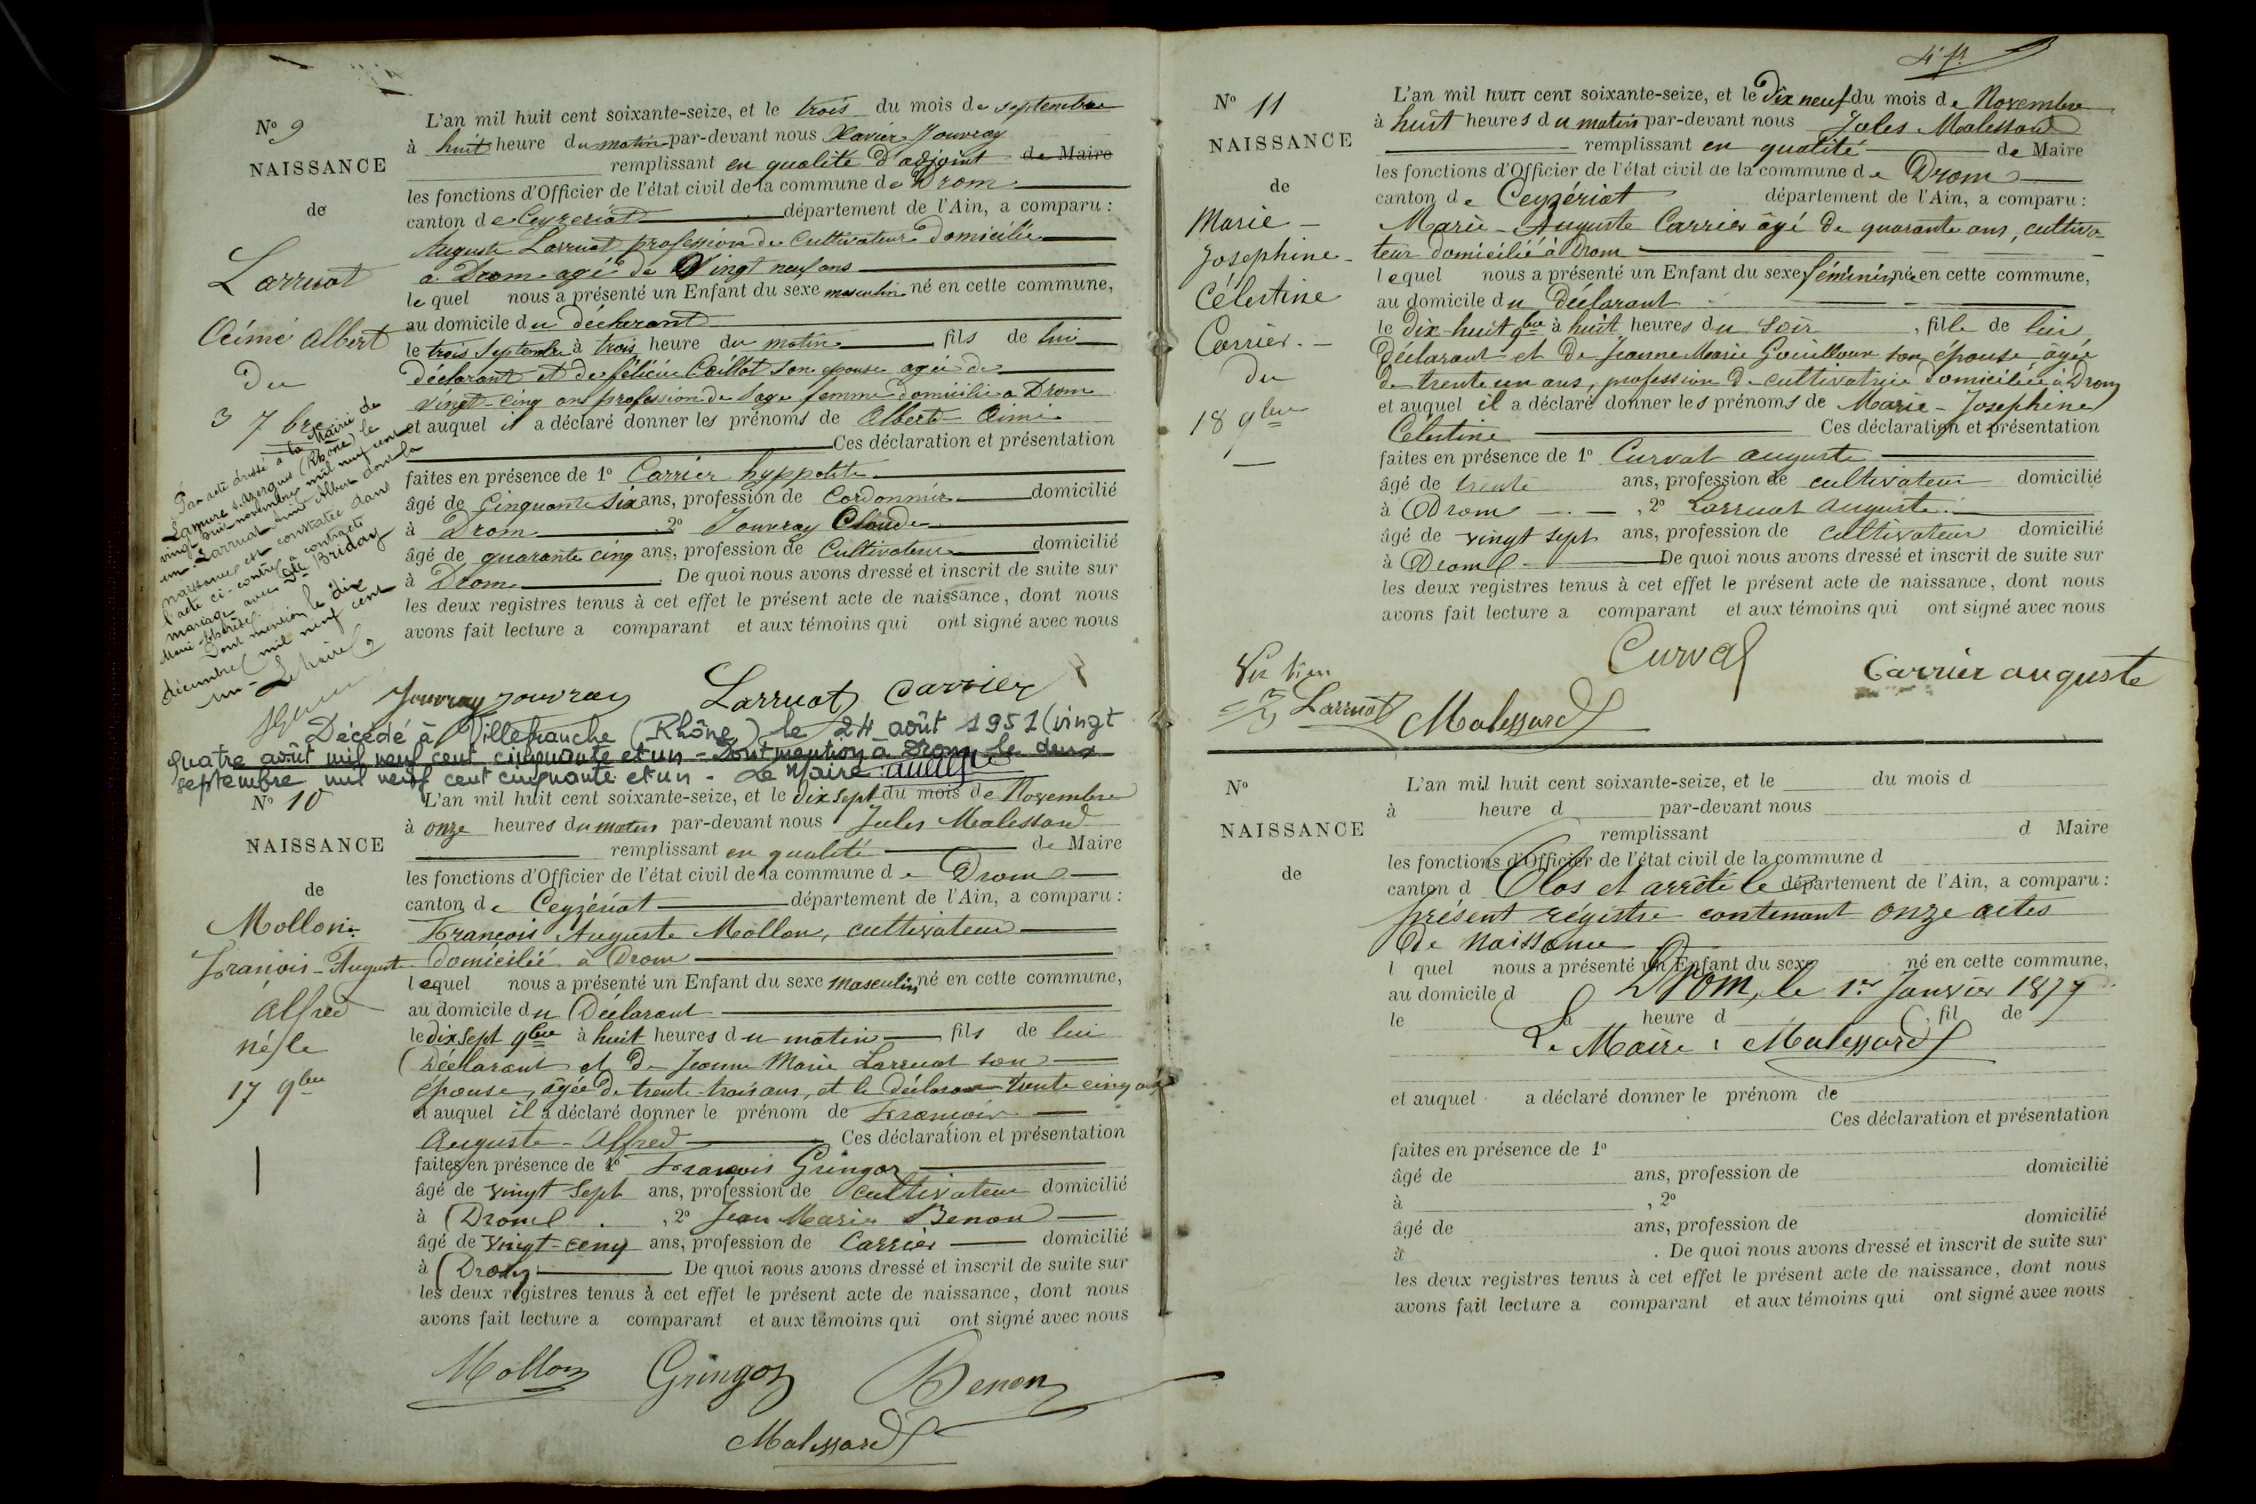 N° 9
NAISSANCE
de
Larruat
Aimé Albert
Du
3 7bre
Par acte dressé à la Mairie de
Lamure s. Azergues (Rhône) le
vingt huit novembre mil neuf cent
un - Larruat Aimé Albert dont la
naissance est constatée dans
l'acte ci-contre a contracté
mariage avec Dlle Briday
Marie
Dont mention le dix
décembre mil neuf cent
un - Le Maire
L'an mil huit cent soixante-seize, et le trois du mois de septembre
à huit heure du matin par-devant nous Xavier Jouvray
remplissant en qualité d'adjoint de Maire
les fonctions d'Officier de l'état civil de la commune de Drom
canton de Ceyzeriat département de l'Ain, a comparu :
Auguste Larruat profession de cultivateur domicilié
a Drom agé de Vingt neuf ans
le quel nous a présenté un Enfant du sexe masculin né en cette commune,
au domicile du déclarant
le trois Septembre à trois heure du matin fils de lui
déclarant et de félicie Caillot Son epouse agée de
vingt-cinq ans profession de Sage femme domicilié a Drom
et auquel il a déclaré donner les prénoms de Albert Aimé
Ces déclaration et présentation
faites en présence de 1° Carrier hyppolite
âgé de Cinquante six ans, profession de Cordonnier domicilié
à Drom 2° Jouvray Claude
âgé de quarante cinq ans, profession de Cultivateur domicilié
à Drom . De quoi nous avons dressé et inscrit de suite sur
les deux registres tenus à cet effet le présent acte de naissance, dont nous
avons fait lecture a comparant et aux témoins qui ont signé avec nous
Jouvray Jouvray Larruat Carrier
Décédé à Villefranche (Rhône) le 24 août 1951 (vingt
quatre août mil neuf cent cinquante et un - Dont mention à Drom le deux
septembre mil neuf cent cinquante et un - Le Maire :
N° 10
NAISSANCE
de
Mollon
François-Auguste
Alfred
né le
17 9bre
L'an mil huit cent soixante-seize, et le dix sept du mois de Novembre
à onze heures du matin par-devant nous Jules Malessard
remplissant en qualité de Maire
les fonctions d'Officier de l'état civil de la commune de Drom
canton de Ceyzériat département de l'Ain, a comparu :
François Auguste Mollon, cultivateur
domicilié à Drom
lequel nous a présenté un Enfant du sexe masculin né en cette commune,
au domicile du Déclarant
le dix sept 9bre à huit heures du matin fils de lui
Déclarant et De Jeanne Marie Larruat son
épouse, âgée De trente-trois ans, et le déclarant trente cinq ans
et auquel il a déclaré donner le prénom de François
Auguste - Alfred Ces déclaration et présentation
faites en présence de 1° François Gringoz
âgé de vingt sept ans, profession de cultivateur domicilié
à Drom , 2° Jean Marie Benon
âgé de vingt-cinq ans, profession de Carrier domicilié
à Drom De quoi nous avons dressé et inscrit de suite sur
les deux registres tenus à cet effet le présent acte de naissance, dont nous
avons fait lecture a comparant et aux témoins qui ont signé avec nous
Mollon Gringoz Benon
Malessard
N° 11
NAISSANCE
de
Marie -
Josephine -
Célestine
Carrier. -
du
18 9bre
L'an mil huit cent soixante-seize, et le Dix neuf du mois de Novembre
à huit heures du matin par-devant nous Jules Malessard
remplissant en qualité de Maire
les fonctions d'Officier de l'état civil de la commune de Drom
canton de Ceyzériat département de l'Ain, a comparu :
Marie-Auguste Carrier âgé de quarante ans, cultiva-
teur domicilié à Drom
lequel nous a présenté un Enfant du sexe féminin née en cette commune,
au domicile du Déclarant
le dix-huit 9bre à huit heures du soir , fille de lui
Déclarant et De Jeanne Marie Gouilloux son épouse âgée
de trente un ans, profession De cultivatrice domiciliée à Drom
et auquel il a déclaré donner les prénoms de Marie - Josephine
Célestine Ces déclaration et présentation
faites en présence de 1° Curvat auguste
âgé de trente ans, profession de cultivateur domicilié
à Drom , 2° Larruat Auguste
âgé de vingt sept ans, profession de cultivateur domicilié
à Drom De quoi nous avons dressé et inscrit de suite sur
les deux registres tenus à cet effet le présent acte de naissance, dont nous
avons fait lecture a comparant et aux témoins qui ont signé avec nous
Curval Carrier auguste
Larruat Malessard
N°
NAISSANCE
de
L'an mil huit cent soixante-seize, et le du mois d
à heure d par-devant nous
remplissant d Maire
les fonctions d'Officier de l'état civil de la commune d
canton d Clos et arrêté le département de l'Ain, a comparu :
présent régistre contenant onze actes
De Naissance
l quel nous a présenté un Enfant du sexe né en cette commune,
au domicile d Drom, le 1er Janvier 1877
le à heure d , fil de
Le Maire : Malessard
et auquel a déclaré donner le prénom de
Ces déclaration et présentation
faites en présence de 1°
âgé de ans, profession de domicilié
à , 2°
âgé de ans, profession de domicilié
à . De quoi nous avons dressé et inscrit de suite sur
les deux registres tenus à cet effet le présent acte de naissance, dont nous
avons fait lecture a comparant et aux témoins qui ont signé avec nous